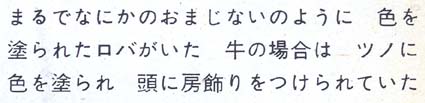 まるでなにかのおまじないのように　色を
塗られたロバがいた　牛の場合は　ツノに
色を塗られ　頭に房飾りをつけられていた